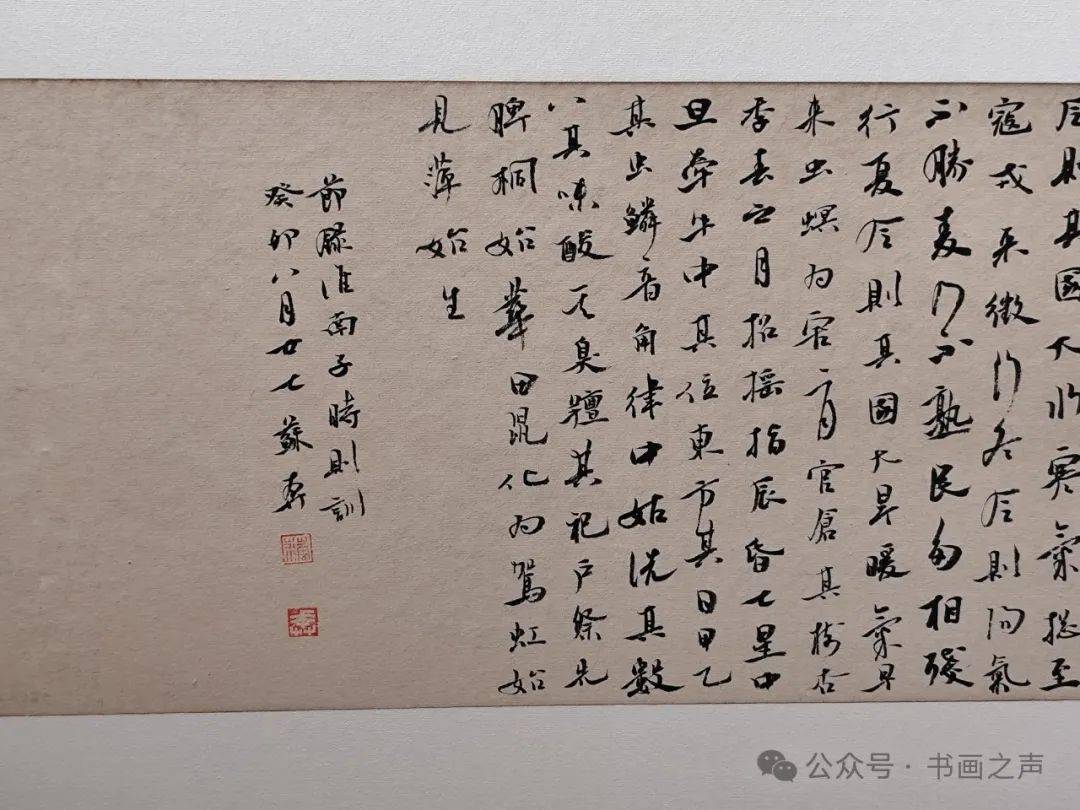 令則其國大水寒氣揔至
寇戎来徵行冬令則陽氣
不勝麦乃不熟民多相殘
行夏令則其國大旱暖氣早
来虫螟为害二月官倉其樹杏
季春之月招摇指辰昏七星中
旦牽牛中其位東方其日甲乙
其虫鱗音角律中姑洗其數
八其味酸其臭羶其祀户祭先
脾桐始華田鼠化为鴽虹始
見萍始生
節録淮南子時則訓
癸卯八月廿七蘇
公众号·书画之声